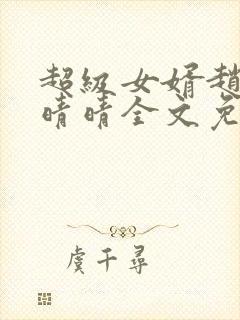 超级女婿赵
晴晴全文免
虞千寻